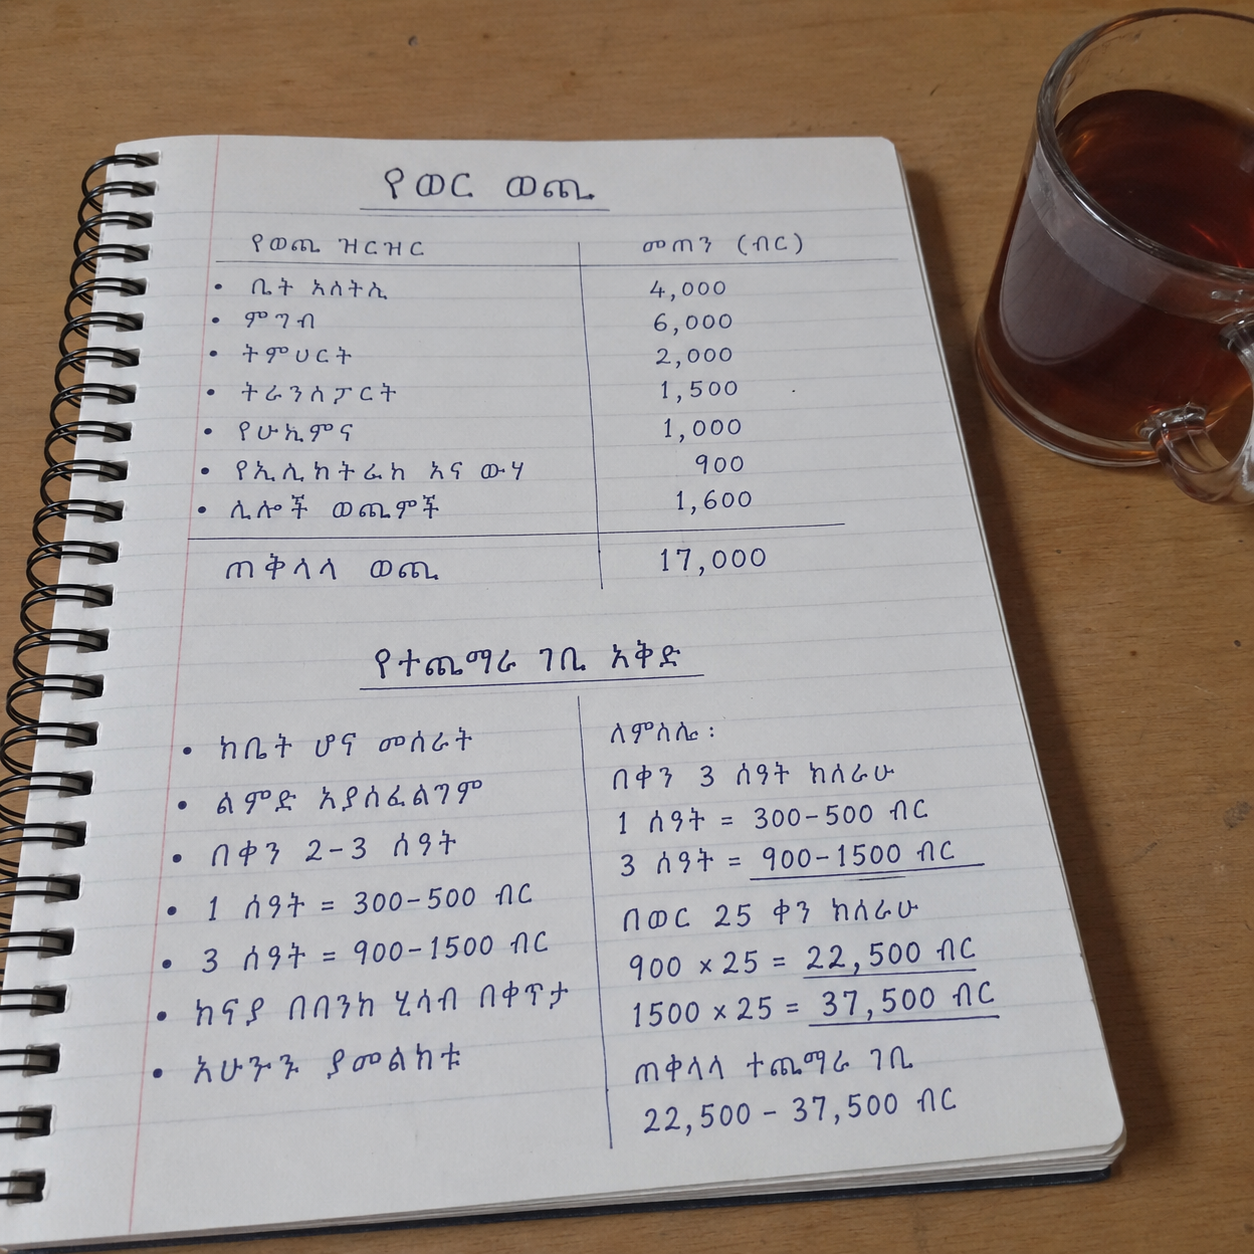 የወር ወጪ
የወጪ ዝርዝር መጠን (ብር)
• ቤት አስትሊ 4,000
• ምግብ 6,000
• ትምህርት 2,000
• ትራንስፖርት 1,500
• የሁኢምና 1,000
• የኢሊክትራክ እና ውሃ 900
• ሊሎች ወጪምች 1,600
ጠቅላላ ወጪ 17,000
የተጨማሪ ገቢ እቅድ
• ከቤት ሆና መሰራት
• ልምድ አያስፈልግም
• በቀን 2-3 ሰዓት
• 1 ሰዓት = 300-500 ብር
• 3 ሰዓት = 900-1500 ብር
• ክፍያ በባንክ ሂሳብ በቀጥታ
• አሁኑኑ ያመልክቱ
ለምሳሌ፡
በቀን 3 ሰዓት ከሰራሁ
1 ሰዓት = 300-500 ብር
3 ሰዓት = 900-1500 ብር
በወር 25 ቀን ከሰራሁ
900 × 25 = 22,500 ብር
1500 × 25 = 37,500 ብር
ጠቀላላ ተጨማሪ ገቢ
22,500 - 37,500 ብር